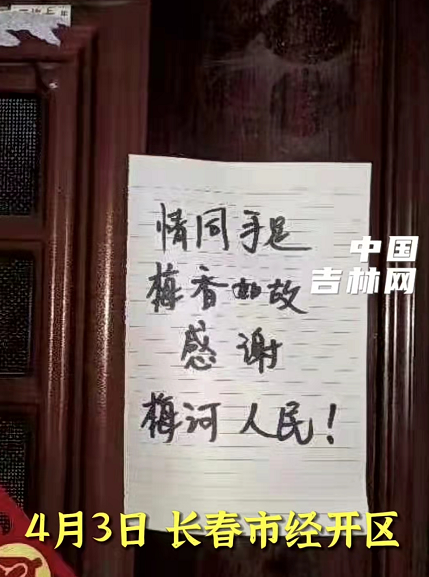 情同手足
梅香如故
感谢
梅河人民!
中国
吉林网
4月3日 长春市经开区